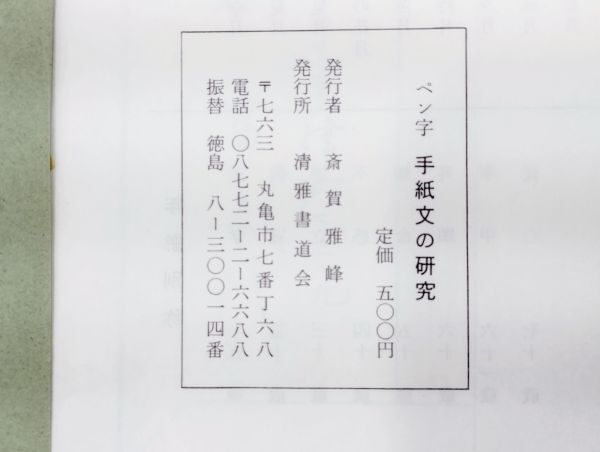 ペン字 手紙文の研究
定価 五〇〇円
発行者 斎賀雅峰
発行所 清雅書道会
〒七六三 丸亀市七番丁六八
電話 〇八七七二ー二ー六六八八
振替 徳島 八ー三〇〇一四番